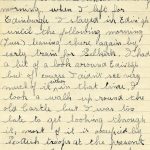 morning, when I left for
Edinburgh I stayed in Edin'gh
until the following morning
(Tues) leaving there again by
early train for Belfast. I had
a bit of a look around Edin'gh
but of course I didn't see very
much of it in that time. I
took a walk up round the
old Castle, but I was too
late to get looking through
it, most of it is occupied by
Scottish troops at the present